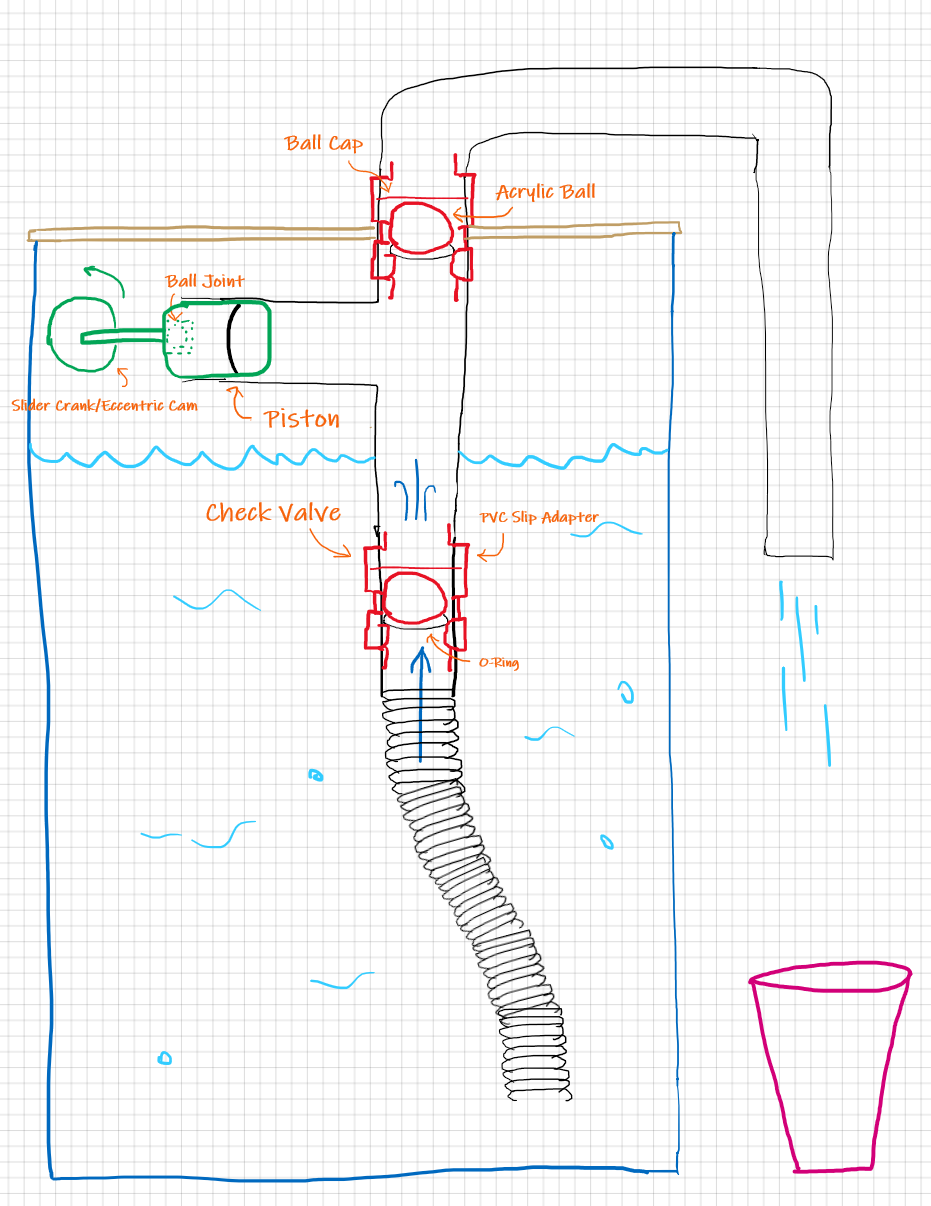 Ball Cap
Acrylic Ball
Ball Joint
Slider Crank/Eccentric Cam
Piston
Check Valve
PVC Slip Adapter
O-Ring